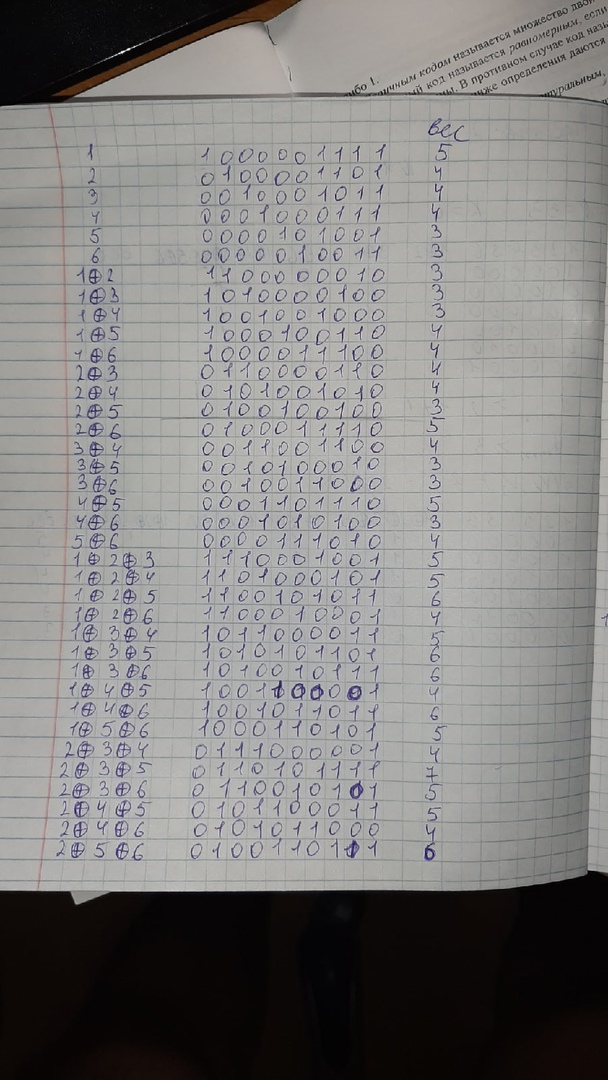 называется множество
код называется равномерным, если
В противном случае код
определения даются
вес
1 1000001111 5
2 0100001101 4
3 0010001011 4
4 0001000111 4
5 0000101001 3
6 0000010011 3
1⊕2 1100000010 3
1⊕3 1010000100 3
1⊕4 1001001000 3
1⊕5 1000100110 4
1⊕6 1000011100 4
2⊕3 0110000110 4
2⊕4 0101001010 4
2⊕5 0100100100 3
2⊕6 0100011110 5
3⊕4 0011001100 4
3⊕5 0010100010 3
3⊕6 0010011000 3
4⊕5 0001101110 5
4⊕6 0001010100 3
5⊕6 0000111010 4
1⊕2⊕3 1110001001 5
1⊕2⊕4 1101000101 5
1⊕2⊕5 1100101011 6
1⊕2⊕6 1100010001 4
1⊕3⊕4 1011000011 5
1⊕3⊕5 1010101101 6
1⊕3⊕6 1010010111 6
1⊕4⊕5 1001100001 4
1⊕4⊕6 1001011011 6
1⊕5⊕6 1000110101 5
2⊕3⊕4 0111000001 4
2⊕3⊕5 0110101111 7
2⊕3⊕6 0110010101 5
2⊕4⊕5 0101100011 5
2⊕4⊕6 0101011000 4
2⊕5⊕6 0100110111 6